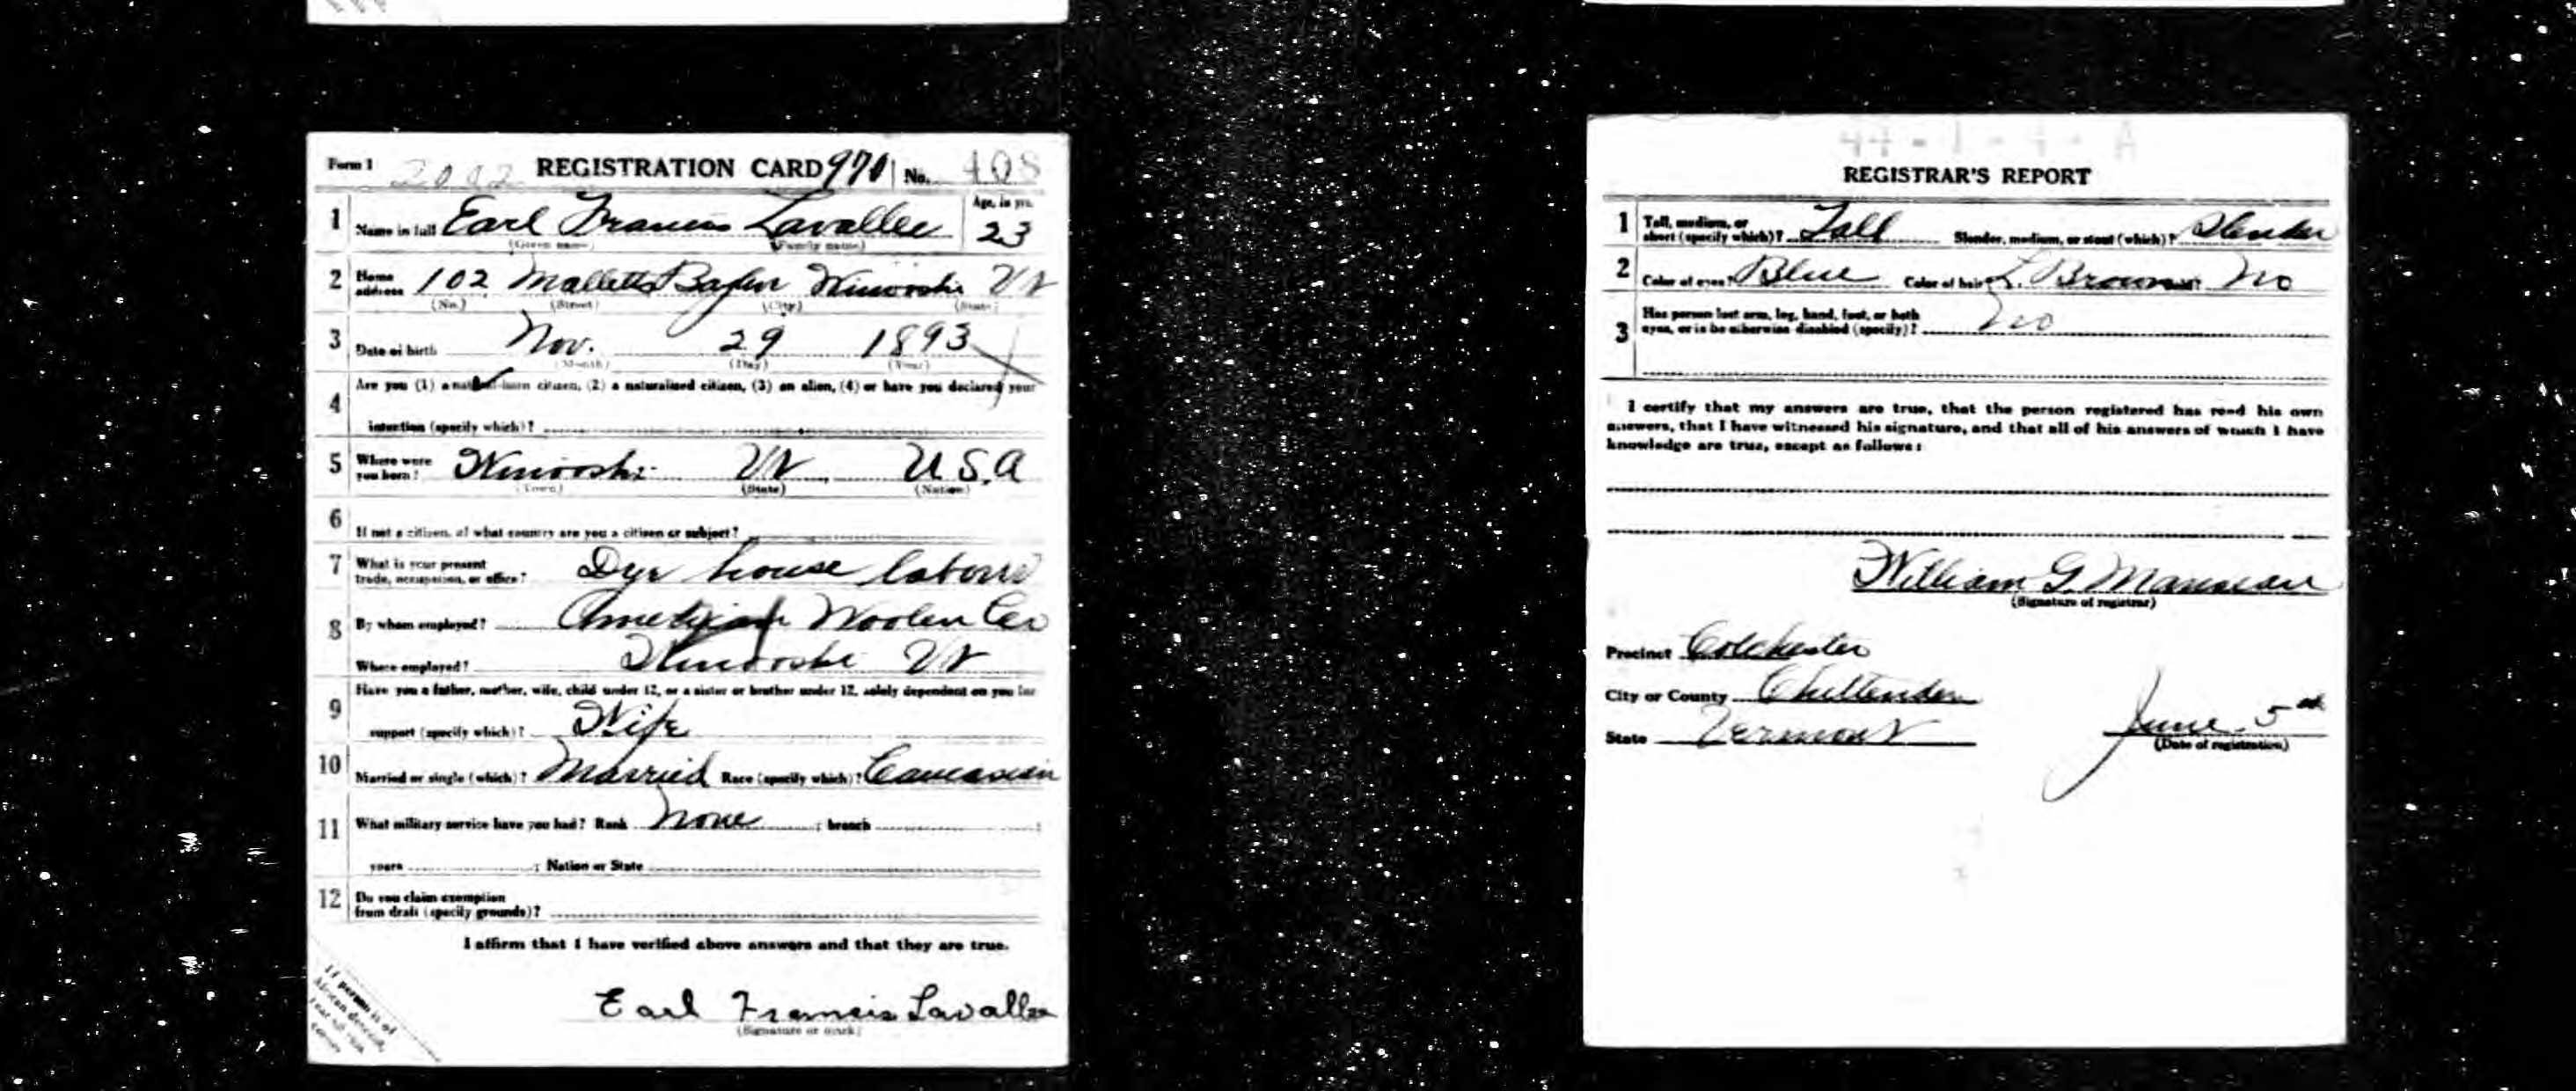 Form 1 REGISTRATION CARD 970 No. 408
1 Name in full Earl Francis Lavallee Age, in yrs. 23
(Given name) (Family name)
2 Home address 102 Malletts Winooski Vt
(No.) (Street) (City) (State)
3 Date of birth Nov. 29 1893
(Month) (Day) (Year)
4 Are you (1) a natural-born citizen, (2) a naturalized citizen, (3) an alien, (4) or have you declared your
intention (specify which)?
5 Where were you born? Winooski Vt U.S.A
(Town) (State) (Nation)
6 If not a citizen, of what country are you a citizen or subject?
7 What is your present trade, occupation, or office? Dye house laborer
8 By whom employed? American Woolen Co
Where employed? Winooski Vt
9 Have you a father, mother, wife, child under 12, or a sister or brother under 12, solely dependent on you for
support (specify which)? Wife
10 Married or single (which)? Married Race (specify which)? Caucasian
11 What military service have you had? Rank None ; branch ;
years ; Nation or State
12 Do you claim exemption from draft (specify grounds)?
I affirm that I have verified above answers and that they are true.
Earl Francis Lavallee
(Signature or mark)
If person is of
African descent,
REGISTRAR'S REPORT
1 Tall, medium, or short (specify which)? Tall Slender, medium, or stout (which)? Slender
2 Color of eyes? Blue Color of hair? L. Brown No
3 Has person lost arm, leg, hand, foot, or both eyes, or is he otherwise disabled (specify)? No
I certify that my answers are true, that the person registered has read his own
answers, that I have witnessed his signature, and that all of his answers of which I have
knowledge are true, except as follows:
William G. Manseau
(Signature of registrar)
Precinct Colchester
City or County Chittenden
State Vermont June 5th
(Date of registration)